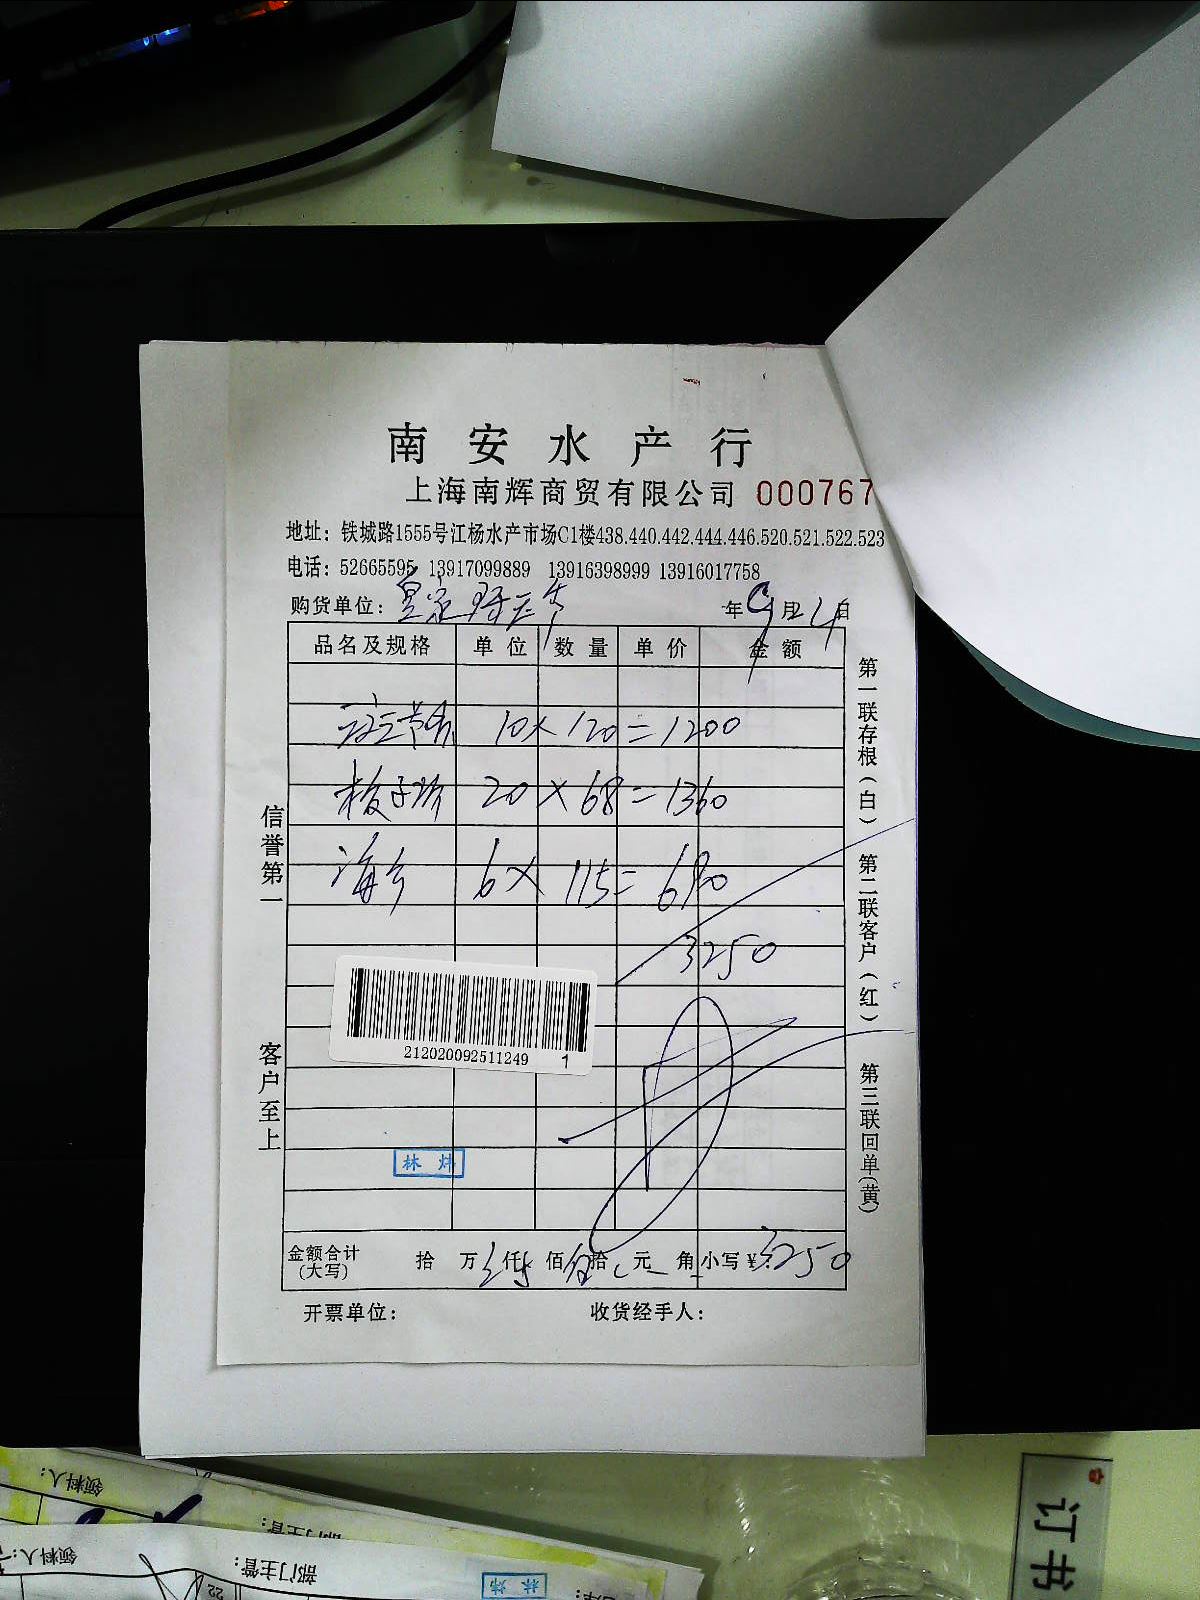 南安水产行
上海南辉商贸有限公司 000767
地址：铁城路1555号江杨水产市场C1楼438.440.442.444.446.520.521.522.523
电话：52665595 13917099889 13916398999 13916017758
购货单位： 年9月24日
品名及规格 单位 数量 单价 金额
10×120=1200
20×68=1360
6×115=690
3250
212020092511249 1
林炜
金额合计(大写) 拾 万 仟 佰 拾 元 角 小写¥3250
开票单位： 收货经手人：
信誉第一
客户至上
第一联存根(白)
第二联客户(红)
第三联回单(黄)
领料人：
部门主管：
领料人：
部门主管：
22
林炜
订书